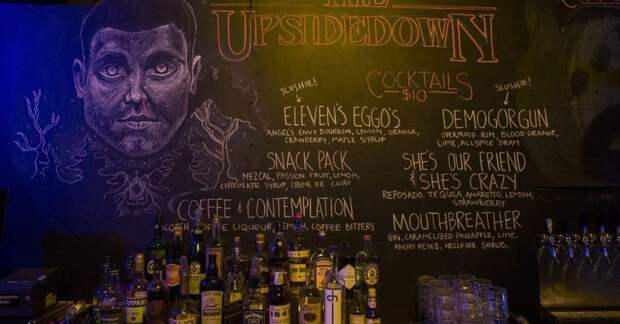 THE
UPSIDEDOWN
COCKTAILS
$10
SLUSHIE!
ELEVEN'S EGGO'S
ANGEL'S ENVY BOURBON, LEMON, ORANGE,
CRANBERRY, MAPLE SYRUP
SNACK PACK
MEZCAL, PASSION FRUIT, LEMON,
CHOCOLATE SYRUP, CREME DE CACAO
COFFEE & CONTEMPLATION
SCOTCH, COFFEE LIQUEUR, LEMON, COFFEE BITTERS
SLUSHIE!
DEMOGORGUN
OVERPROOF RUM, BLOOD ORANGE,
LIME, ALLSPICE DRAM
SHE'S OUR FRIEND
& SHE'S CRAZY
REPOSADO TEQUILA, AMARETTO, LEMON,
STRAWBERRY
MOUTHBREATHER
GIN, CARAMELIZED PINEAPPLE, LIME,
ANCHO REYES, HELLFIRE SHRUB.